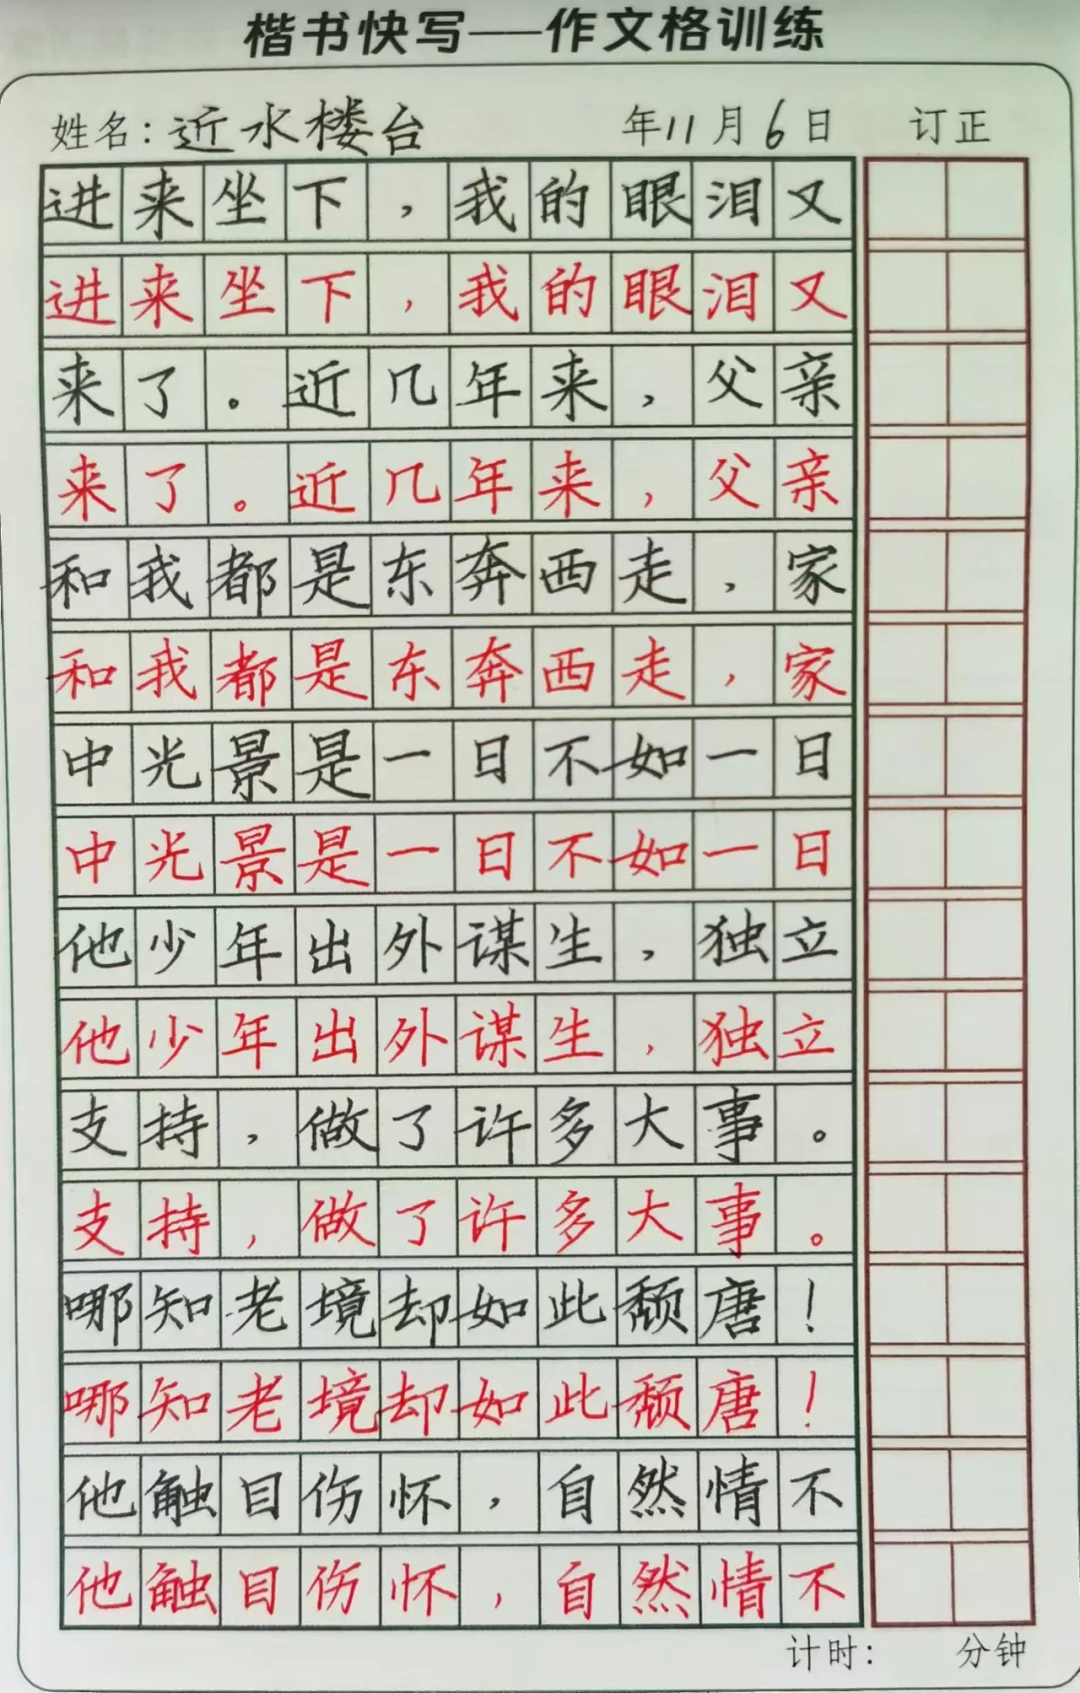 楷书快写——作文格训练
姓名：近水楼台 年11月6日 订正
进来坐下，我的眼泪又
进来坐下，我的眼泪又
来了。近几年来，父亲
来了。近几年来，父亲
和我都是东奔西走，家
和我都是东奔西走，家
中光景是一日不如一日
中光景是一日不如一日
他少年出外谋生，独立
他少年出外谋生，独立
支持，做了许多大事。
支持，做了许多大事。
哪知老境却如此颓唐！
哪知老境却如此颓唐！
他触目伤怀，自然情不
他触目伤怀，自然情不
计时： 分钟